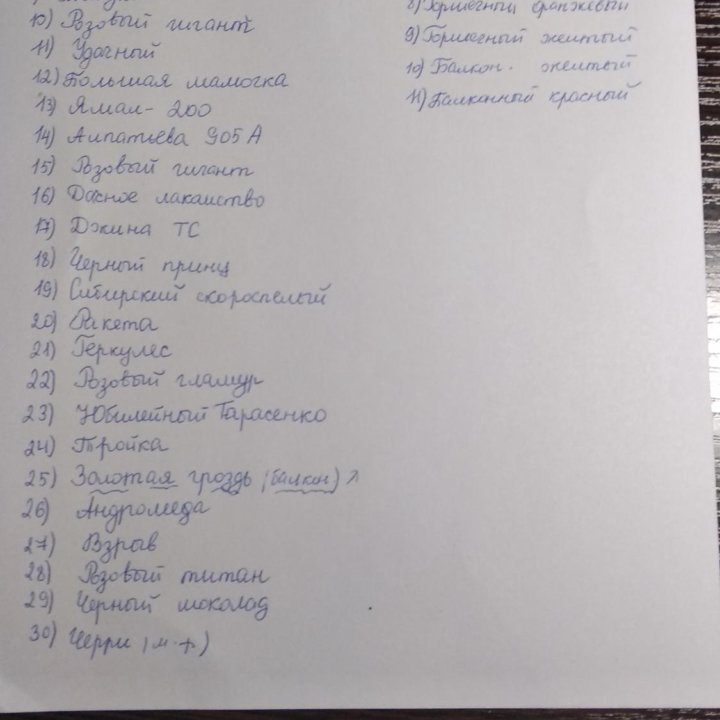 10) Розовый гигант
11) Удачный
12) Большая мамочка
13) Ямал- 200
14) Алпатьева 905 А
15) Розовый гигант
16) Дачное лакомство
17) Джина ТС
18) Черный принц
19) Сибирский скороспелый
20) Ракета
21) Геркулес
22) Розовый гламур
23) Юбилейный Тарасенко
24) Тройка
25) Золотая гроздь (балкон)
26) Андромеда
27) Взрыв
28) Розовый титан
29) Черный шоколад
30) Черри
8) Горшечный оранжевый
9) Горшечный желтый
10) Балкон. желтый
11) Балконный красный